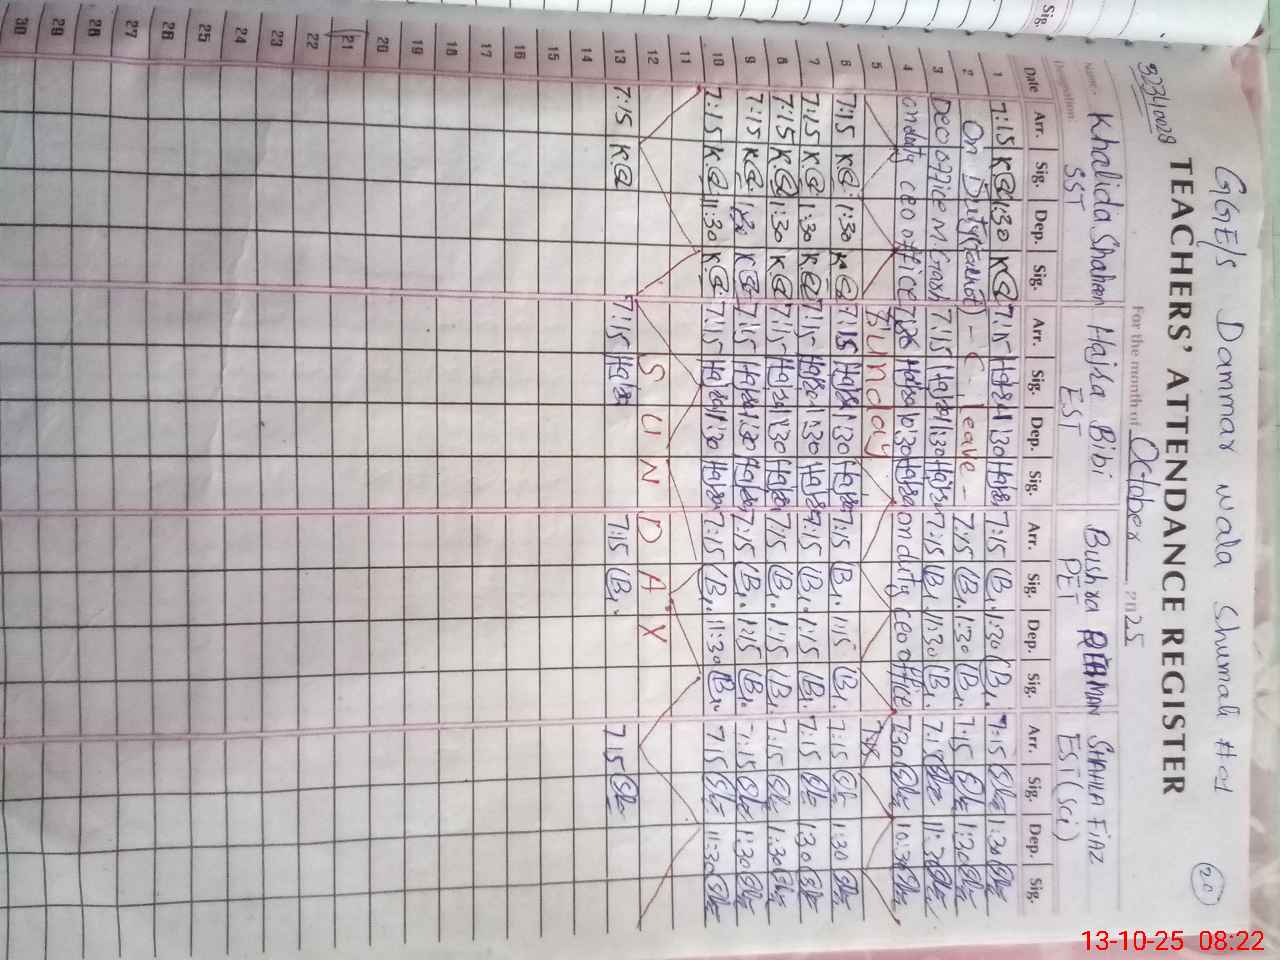 GGE/s Dammar wala Shumali
20
32340028
TEACHERS' ATTENDANCE REGISTER
For the month of October, 2025
Name:- Khalida Shaheen Hajra Bibi Bushra REHMAN SHAHLA FIAZ
Designation: SST EST PET EST (Sci)
Date Arr. Sig. Dep. Sig. Arr. Sig. Dep. Sig. Arr. Sig. Dep. Sig. Arr. Sig. Dep. Sig.
1 7:15 K 1:30 K 7:15 Hajra 1:30 Hajra 7:15 B. 1:30 B. 7:15 1:30
2 On Duty - C. Leave - 7:15 B. 1:30 B. 7:15 1:30
3 DEO office 7:15 Hajra 11:30 Hajra 7:15 B. 11:30 B. 7:15 11:30
4 on duty ceo office Hajra 10:30 Hajra on duty ceo office 7:30 10:30
5 Sunday
6 7:15 K 1:30 K 7:15 Hajra 1:30 Hajra 7:15 B. 1:15 B. 7:15 1:30
7 7:15 K 1:30 K 7:15 Hajra 1:30 Hajra 7:15 B. 1:15 B. 7:15 1:30
8 7:15 K 1:30 K 7:15 Hajra 1:30 Hajra 7:15 B. 1:15 B. 7:15 1:30
9 7:15 K 1:30 K 7:15 Hajra 1:30 Hajra 7:15 B. 1:15 B. 7:15 1:30
10 7:15 K 11:30 K 7:15 Hajra 11:30 Hajra 7:15 B. 11:30 B. 7:15 11:30
11
12 SUNDAY
13 7:15 K 7:15 Hajra 7:15 B. 7:15
14
15
16
17
18
19
20
21
22
23
24
25
26
27
28
29
30
Sig.
13-10-25 08:22